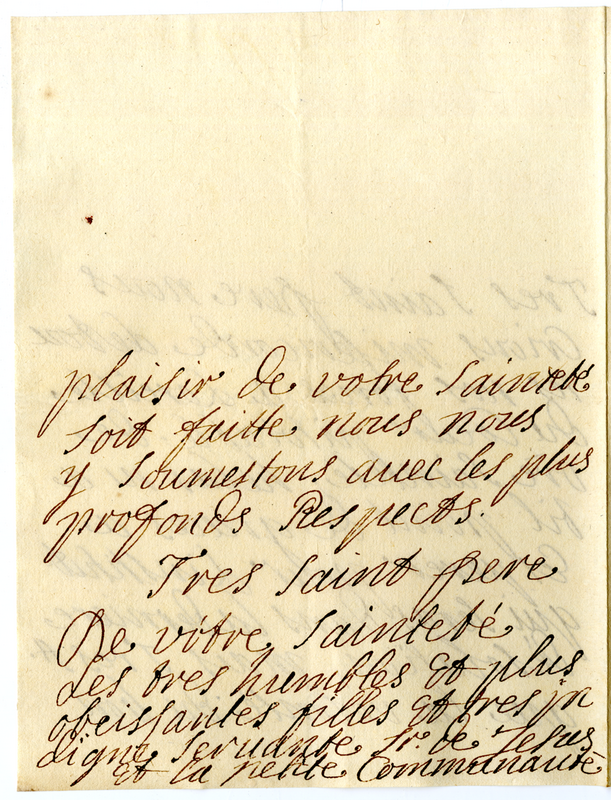 plaisir de votre Sainteté
soit faitte nous nous
y soumettons avec les plus
profonds Respects.
Tres saint pere
De vôtre Sainteté
Les tres humbles et plus
obeissantes filles et tres jn
digne servante Sr. de Jesus
et la petite Communauté